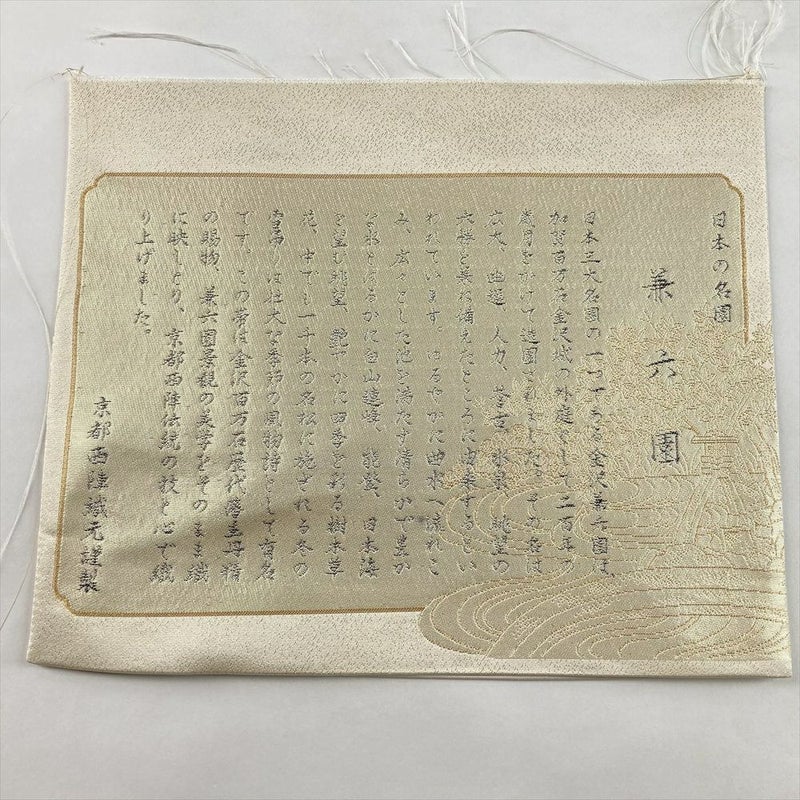 日本の名園
兼六園
日本三大名園の一つである金沢兼六園は、
加賀百万石金沢城の外庭として二百年の
歳月をかけて造園されました。その名は
広大、幽邃、人力、蒼古、水泉、眺望の
六勝を兼ね備えたところに由来するとい
われています。ゆるやかに曲水へ流れこ
み、広々とした池を満たす清らかで豊か
な水とはるかに白山連峰、能登、日本海
を望む眺望、艶やかに四季を彩る樹木草
花、中でも一千本の名松に施される冬の
雪吊りは壮大な季節の風物詩として有名
です。この帯は金沢百万石歴代藩主丹精
の賜物、兼六園景観の美事をそのまま織
に映しとり、京都西陣伝統の技と心で織
り上げました。
京都西陣織元謹製